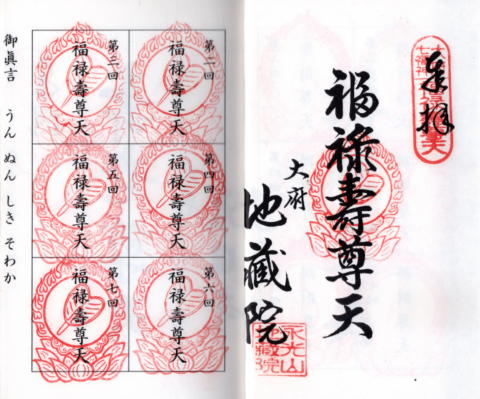 奉拝
福禄壽尊天
大府
地蔵院
第二回
福禄壽尊天
第三回
福禄壽尊天
第四回
福禄壽尊天
第五回
福禄壽尊天
第六回
福禄壽尊天
第七回
福禄壽尊天
御眞言 うん ぬん しき そわか